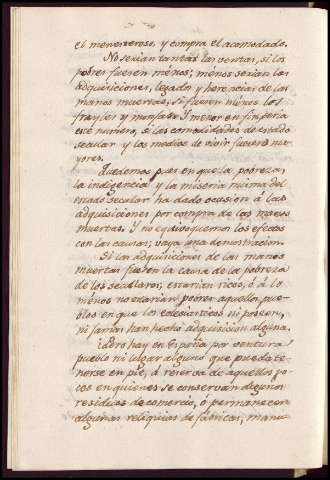 el menesteroso, y compra el acomodado.
No serian tantas las ventas, si los
pobres fuesen ménos; menos serian las
adquisiciones, legados y herencias de las
manos muertas, si fuesen menos los
frayles y monjas. Y menor en fin seria
este numero, si las comodidades de estado
secular y los medios de vivir fuesen ma-
yores.
Quedemos pues en que la pobreza,
la indigencia y la miseria misma del
estado secular ha dado ocasion á las
adquisiciones por compra de las manos
muertas. Y no equivoquemos los efectos
con las causas; vaya una demostracion.
Si las adquisiciones de las manos
muertas fuesen la causa de la pobreza
de los seculares, estarian ricos, ó á lo
ménos no estarian pobres aquellos pue-
blos en que los eclesiasticos ni poseen,
ni jamas han hecho adquisicion alguna.
¿Pero hay en España por ventura
pueblo ni lugar alguno que pueda te-
nerse en pie, á reserva de aquellos po-
cos en quienes se conservan algunos
residuos de comercio, ó permanecen
algunas reliquias de fábricas, manu-